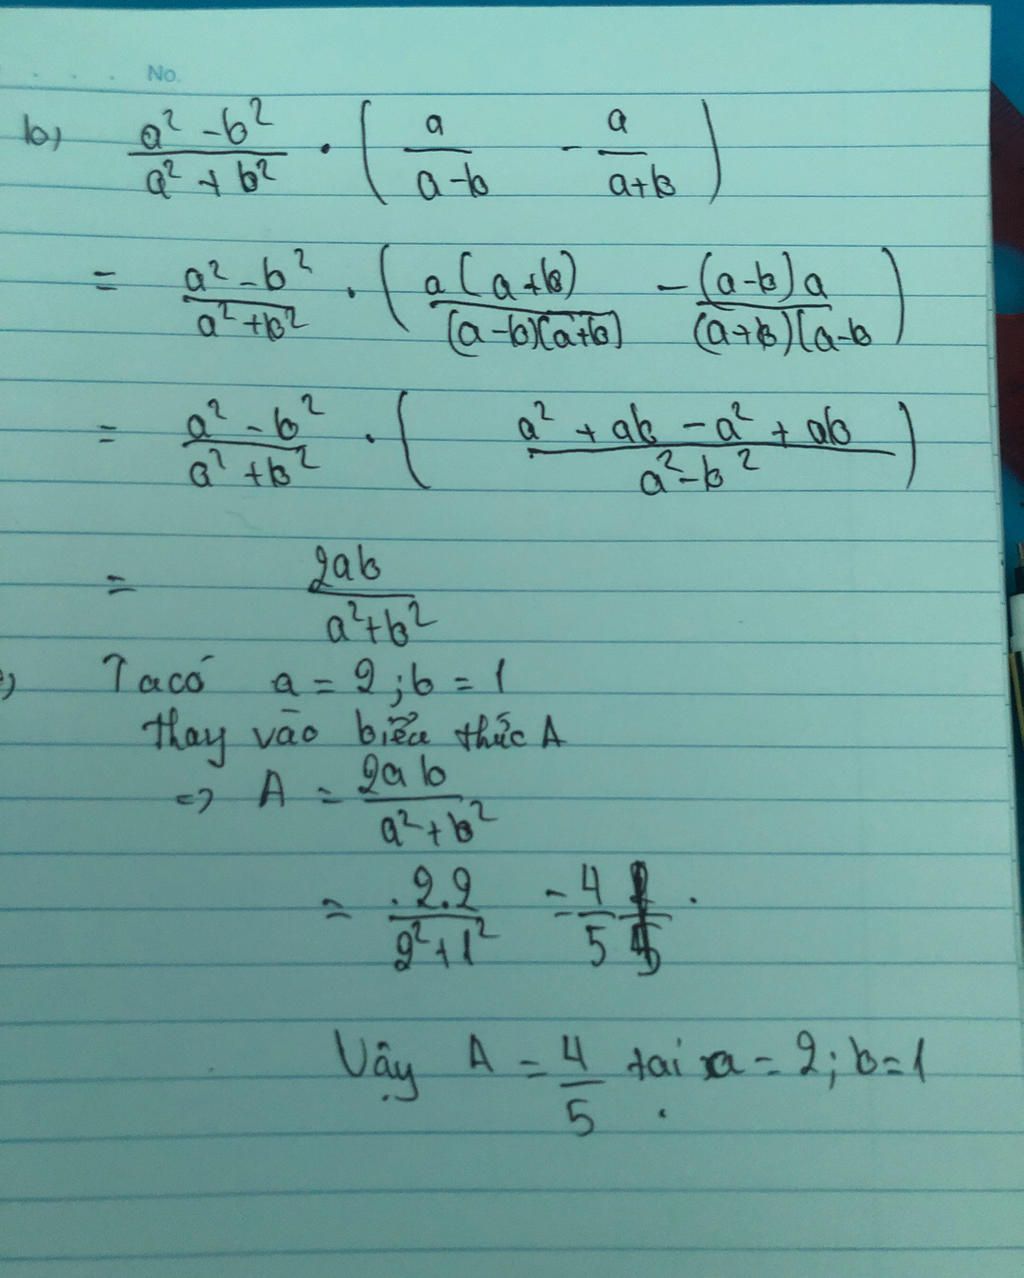 No.
b) \frac{a² - b²}{a² + b²} . ( \frac{a}{a-b} - \frac{a}{a+b} )
= \frac{a² - b²}{a² + b²} . ( \frac{a(a+b)}{(a-b)(a+b)} - \frac{(a-b)a}{(a+b)(a-b} )
= \frac{a² - b²}{a² + b²} . ( \frac{a² + ab - a² + ab}{a² - b²} )
= \frac{2ab}{a² + b²}
Ta có a = 2 ; b = 1
thay vào biểu thức A
=> A = \frac{2ab}{a² + b²}
= \frac{.2.2}{2² + 1²} = \frac{4}{5} .
Vậy A = \frac{4}{5} tại a = 2 ; b = 1 .